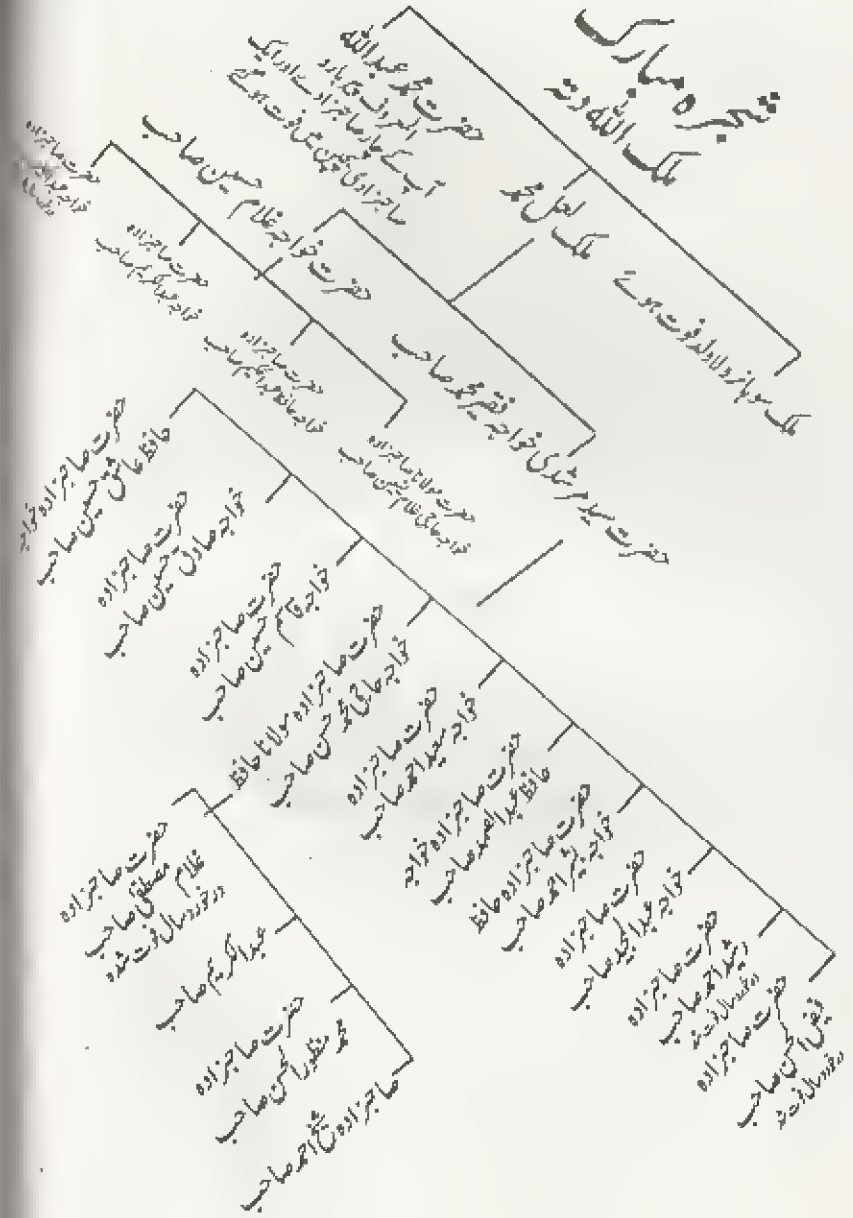 شجرہ مبارک
ملک اللہ دتہ
حضرت محمد عبداللہ
المعروف
آپ کے چار صاحبزادے اور ایک
صاحبزادی بچپن میں فوت ہو گئے
ملک لعل محمد
ملک سوہانرہ لاولد فوت ہوے
حضرت خواجہ غلام حسین صاحب
حضرت سید مرشدی خواجہ فقیر محمد صاحب
حضرت صاحبزادہ
حضرت صاحبزادہ
خواجہ عبدالکریم صاحب
حضرت صاحبزادہ
خواجہ حافظ عبدالحکیم صاحب
حضرت مولانا صاحبزادہ
خواجہ حاجی غلام یٰسین صاحب
حضرت صاحبزادہ خواجہ
حافظ عاشق حسین صاحب
حضرت صاحبزادہ
خواجہ صادق حسین صاحب
حضرت صاحبزادہ
خواجہ قاسم حسین صاحب
حضرت صاحبزادہ مولانا حافظ
خواجہ حاجی محمد حسن صاحب
حضرت صاحبزادہ
خواجہ سعید احمد صاحب
حضرت صاحبزادہ خواجہ
حافظ عبدالصمد صاحب
حضرت صاحبزادہ حافظ
خواجہ بشیر احمد صاحب
حضرت صاحبزادہ
خواجہ عبدالمجید صاحب
حضرت صاحبزادہ
رشید احمد صاحب
در خورد سال فوت شد
حضرت صاحبزادہ
فیض الحسن صاحب
در خورد سال فوت شد
حضرت صاحبزادہ
غلام مصطفیٰ صاحب
در خورد سال فوت شدہ
عبدالکریم صاحب
حضرت صاحبزادہ
محمد منظور الحسن صاحب
صاحبزادہ شیخ احمد صاحب